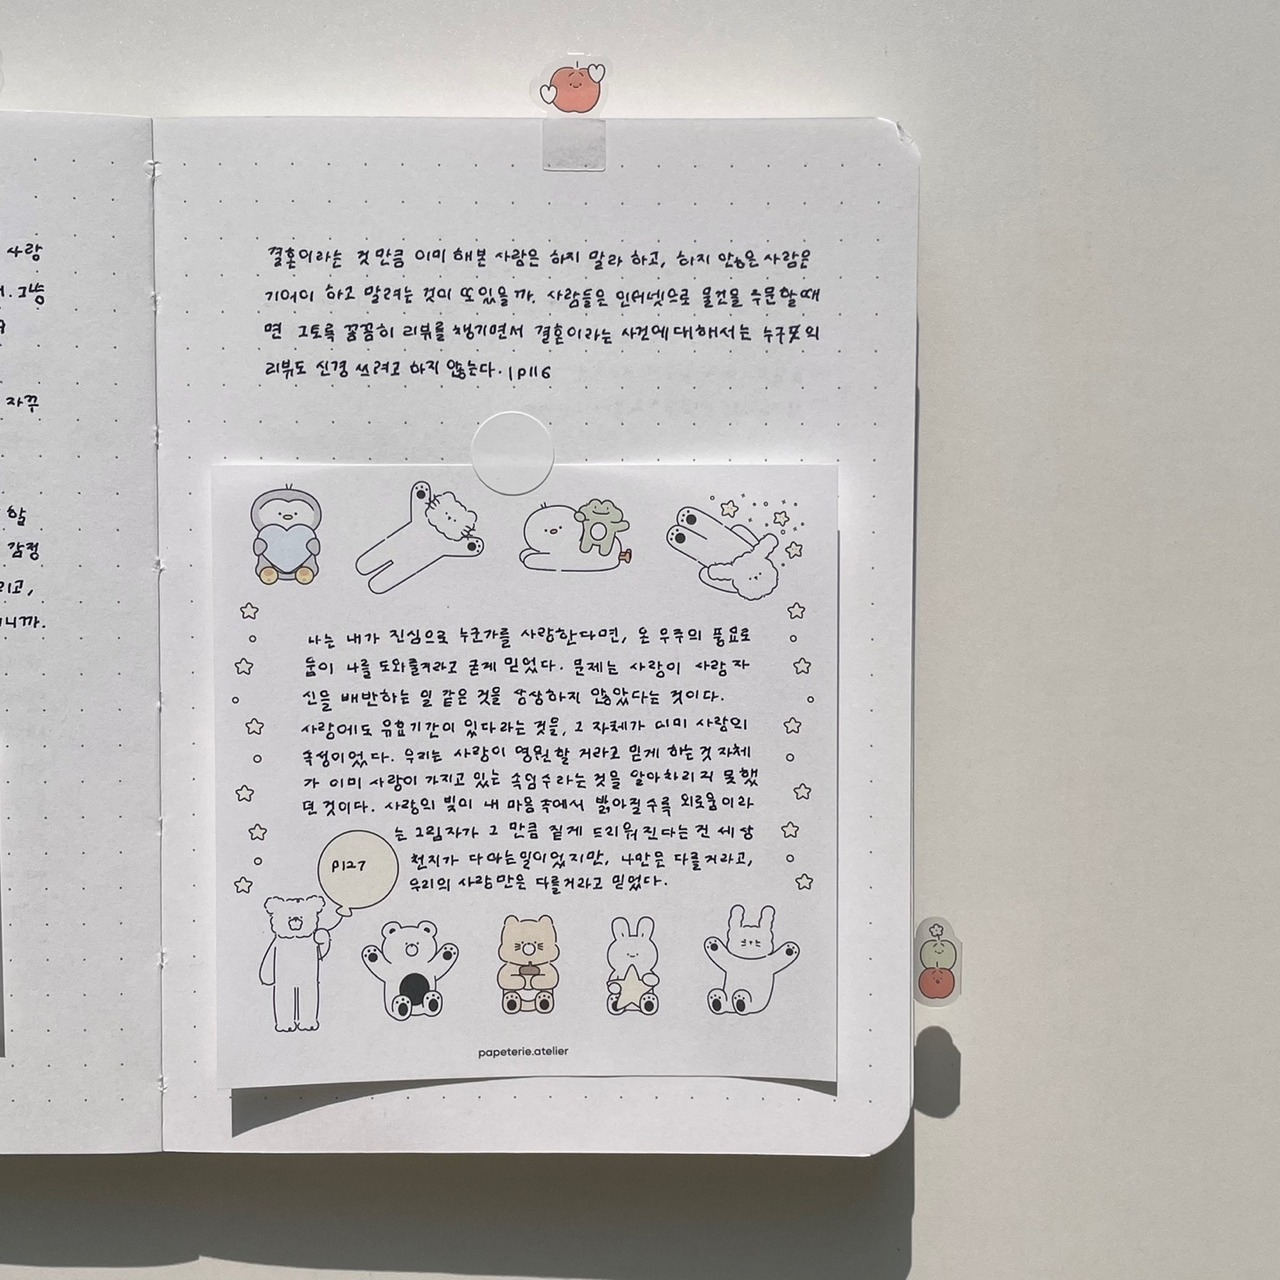 사랑
자꾸
할
감정
니까.
결혼이라는 것 만큼 이미 해본 사람은 하지 말라 하고, 하지 않은 사람은
기어이 하고 말려는 것이 또있을까. 사람들은 인터넷으로 물건을 주문할때
면 그토록 꼼꼼히 리뷰를 챙기면서 결혼이라는 사건에대해서는 누구도의
리뷰도 신경 쓰려고 하지 않는다. | P116
나는 내가 진심으로 누군가를 사랑한다면, 온 우주의 풍요로
움이 나를 도와줄거라고 굳게 믿었다. 문제는 사랑이 사랑 자
신을 배반하는 일 같은 것을 상상하지 않았다는 것이다.
사랑에도 유효기간이 있다라는 것을, 그 자체가 이미 사랑의
속성이었다. 우리는 사랑이 영원할 거라고 믿게 하는것 자체
가 이미 사랑이 가지고 있는 속임수라는 것을 알아차리지 못했
던 것이다. 사랑의 빛이 내 마음 속에서 밝아질수록 외로움이라
는 그림자가 그 만큼 짙게 드리워진다는 건 세상
천지가 다아는일이었지만, 나만은 다를거라고,
우리의 사랑만은 다를거라고 믿었다.
P127
papeterie.atelier